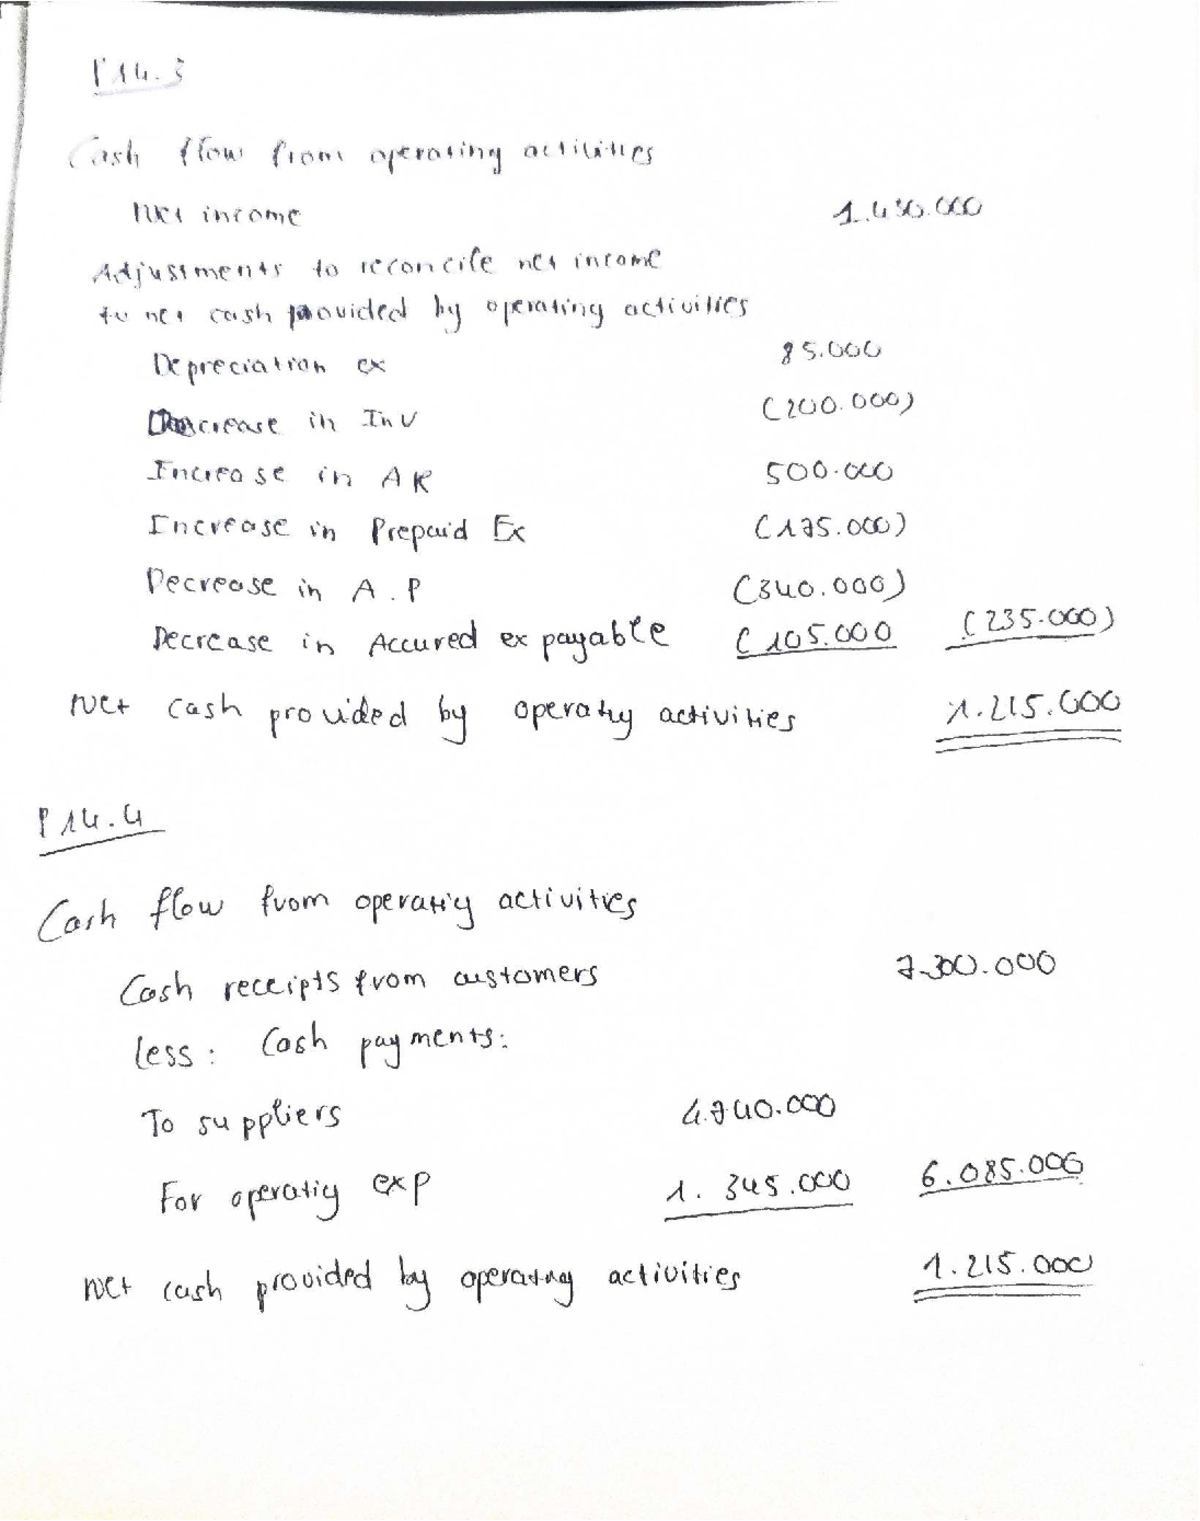 P14.3
Cash flow from operating activities
Net income 1.450.000
Adjustments to reconcile net income
to net cash provided by operating activities
Depreciation ex 85.000
crease in Inv (200.000)
Increase in AR 500.000
Increase in Prepaid Ex (175.000)
Decrease in A.P (340.000)
Decrease in Accured ex payable (105.000 (235.000)
Net cash provided by operating activities 1.215.000
P14.4
Cash flow from operating activities
Cash receipts from customers 7.300.000
Less: Cash payments:
To suppliers 4.740.000
For operating exp 1.345.000 6.085.000
Net cash provided by operating activities 1.215.000